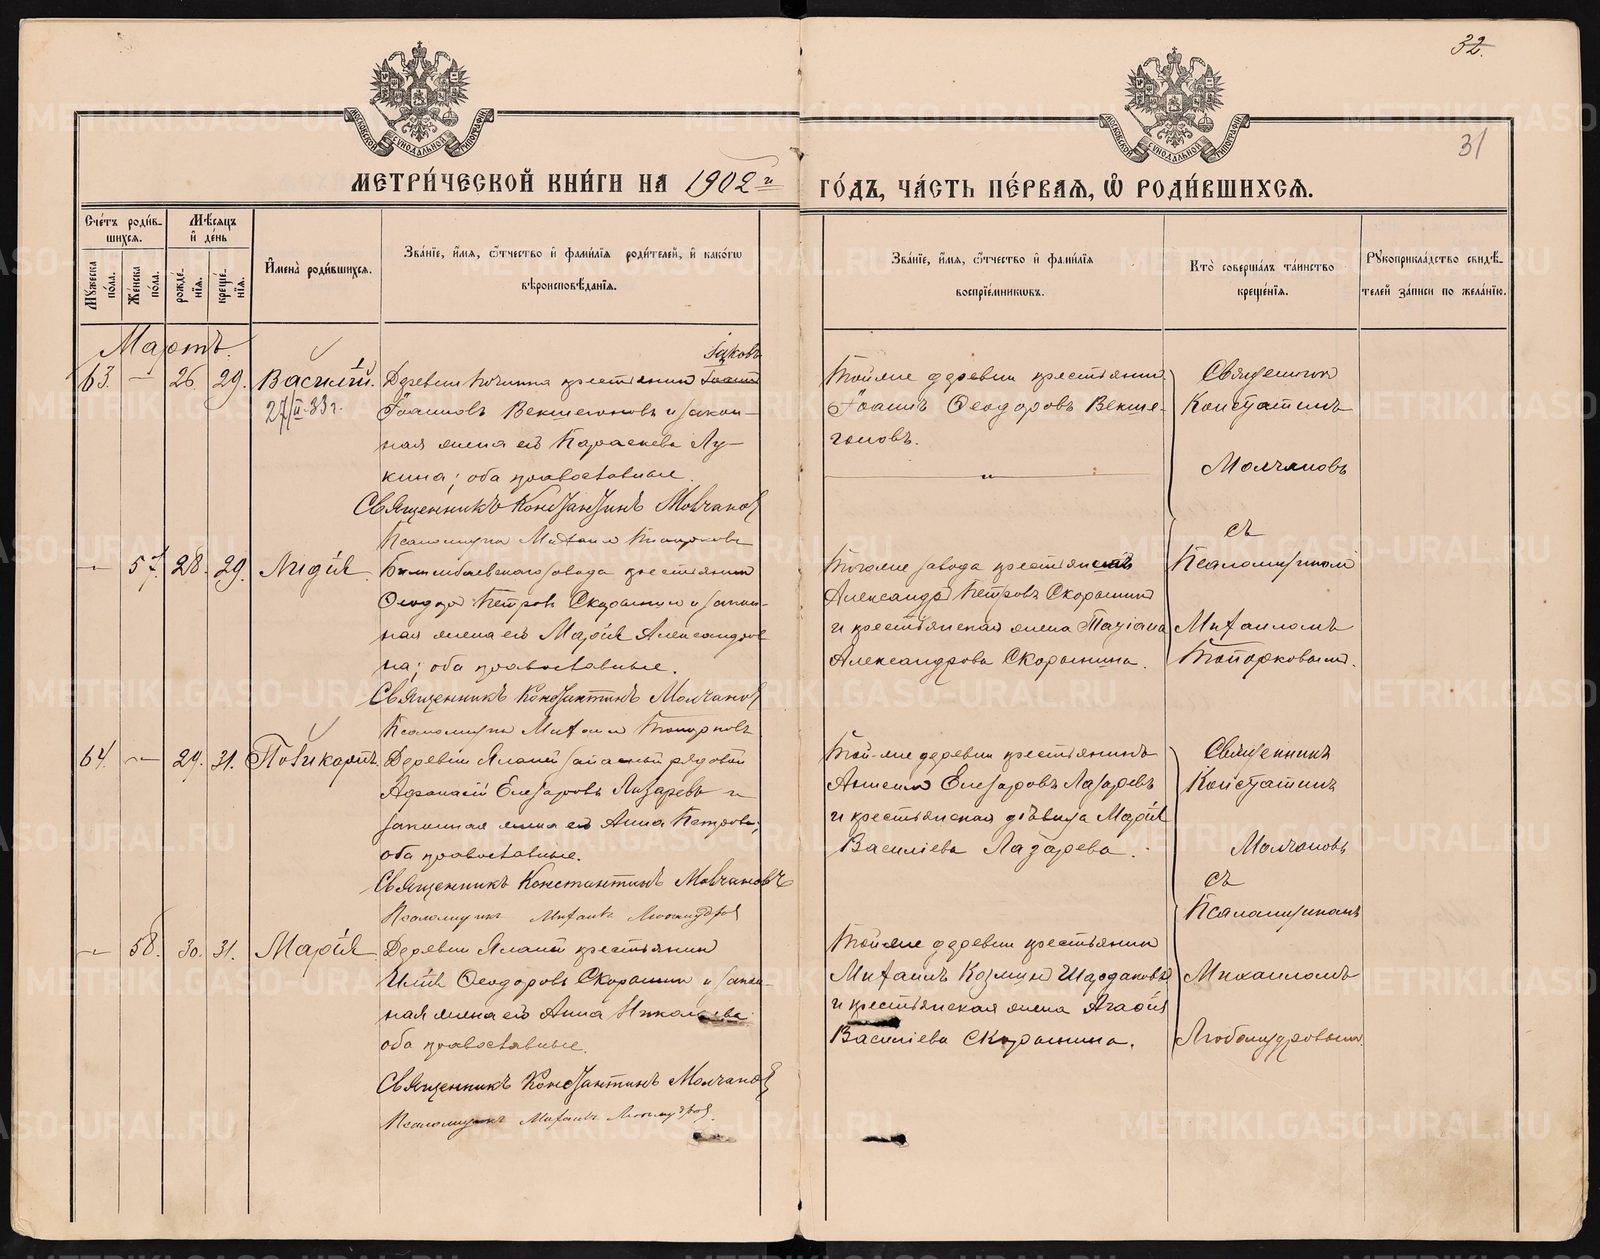 32.
31
МОСКОВСКОЙ СУНОДАЛЬНОЙ ТИПОГРАФІИ
МОСКОВСКОЙ СУНОДАЛЬНОЙ ТИПОГРАФІИ
МЕТРИ́ЧЕСКОЙ КНИ́ГИ НА 1902 г
ГО́ДЪ, ЧА́СТЬ ПЕ́РВАѦ, Ѽ РОДИ́ВШИХСѦ.
Сче́тъ роди́в-
шихсѧ.
Мꙋ́жеска по́ла.
Же́нска по́ла.
Мѣ́сѧцъ
и҆ де́нь
рожде́-
нїѧ.
креще́-
нїѧ.
И҆мена̀ роди́вшихсѧ.
Зва́нїе, и҆́мѧ, ѻ҆́тчество и҆ фами́лїѧ роди́телей, и҆ како́гѡ
вѣроисповѣ́данїѧ.
Зва́нїе, и҆́мѧ, ѻ҆́тчество и҆ фами́лїѧ
воспрїе́мникѡвъ.
Кто̀ соверша́лъ та́инство
креще́нїѧ.
Рꙋкоприкла́дство свидѣ́-
телей за́писи по жела́нїю.
Мартъ.
Іаковъ
63. — 26. 29. Василій. Деревни Починка крестьянинъ
27/II-33 г.
Іоанновъ Векшегоновъ и закон-
ная жена его Параскева Лу-
кина; оба православные.
Священникъ Константинъ Молчановъ
Псаломщикъ Михаилъ Топорковъ
Той же деревни крестьянинъ
Іоаннъ Ѳеодоровъ Векше-
гоновъ.
Священникъ
Константинъ
Молчановъ
съ
Псаломщикомъ
Михаиломъ
Топорковымъ.
— 57. 28. 29. Лидія. Билимбаевскаго завода крестьянинъ
Ѳеодоръ Петровъ Скорынинъ и закон-
ная жена его Марія Александров-
на; оба православные.
Священникъ Константинъ Молчановъ
Псаломщикъ Михаилъ Топорковъ
Того же завода крестьянинъ
Александръ Петровъ Скорынинъ
и крестьянская жена Татіана
Александрова Скорынина.
64. — 29. 31. Поликарпъ. Деревни запасный рядовой
Афанасій Елеазаровъ Лазаревъ и
законная жена его Анна Петрова;
оба православные.
Священникъ Константинъ Молчановъ
Псаломщикъ Михаилъ Любомудровъ
Той-же деревни крестьянинъ
Елеазаровъ Лазаревъ
и крестьянская дѣвица Марія
Василіева Лазарева.
Священникъ
Константинъ
Молчановъ
съ
Псаломщикомъ
Михаиломъ
Любомудровымъ.
— 58. 30. 31. Марія. Деревни крестьянинъ
Илія Ѳеодоровъ Скорынинъ и закон-
ная жена его Анна Николаева
оба православные.
Священникъ Константинъ Молчановъ
Псаломщикъ Михаилъ Любомудровъ.
Той же деревни крестьянинъ
Михаилъ Козминъ
и крестьянская жена Агафія
Василіева Скорынина.
METRIKI.GASO-URAL.RU